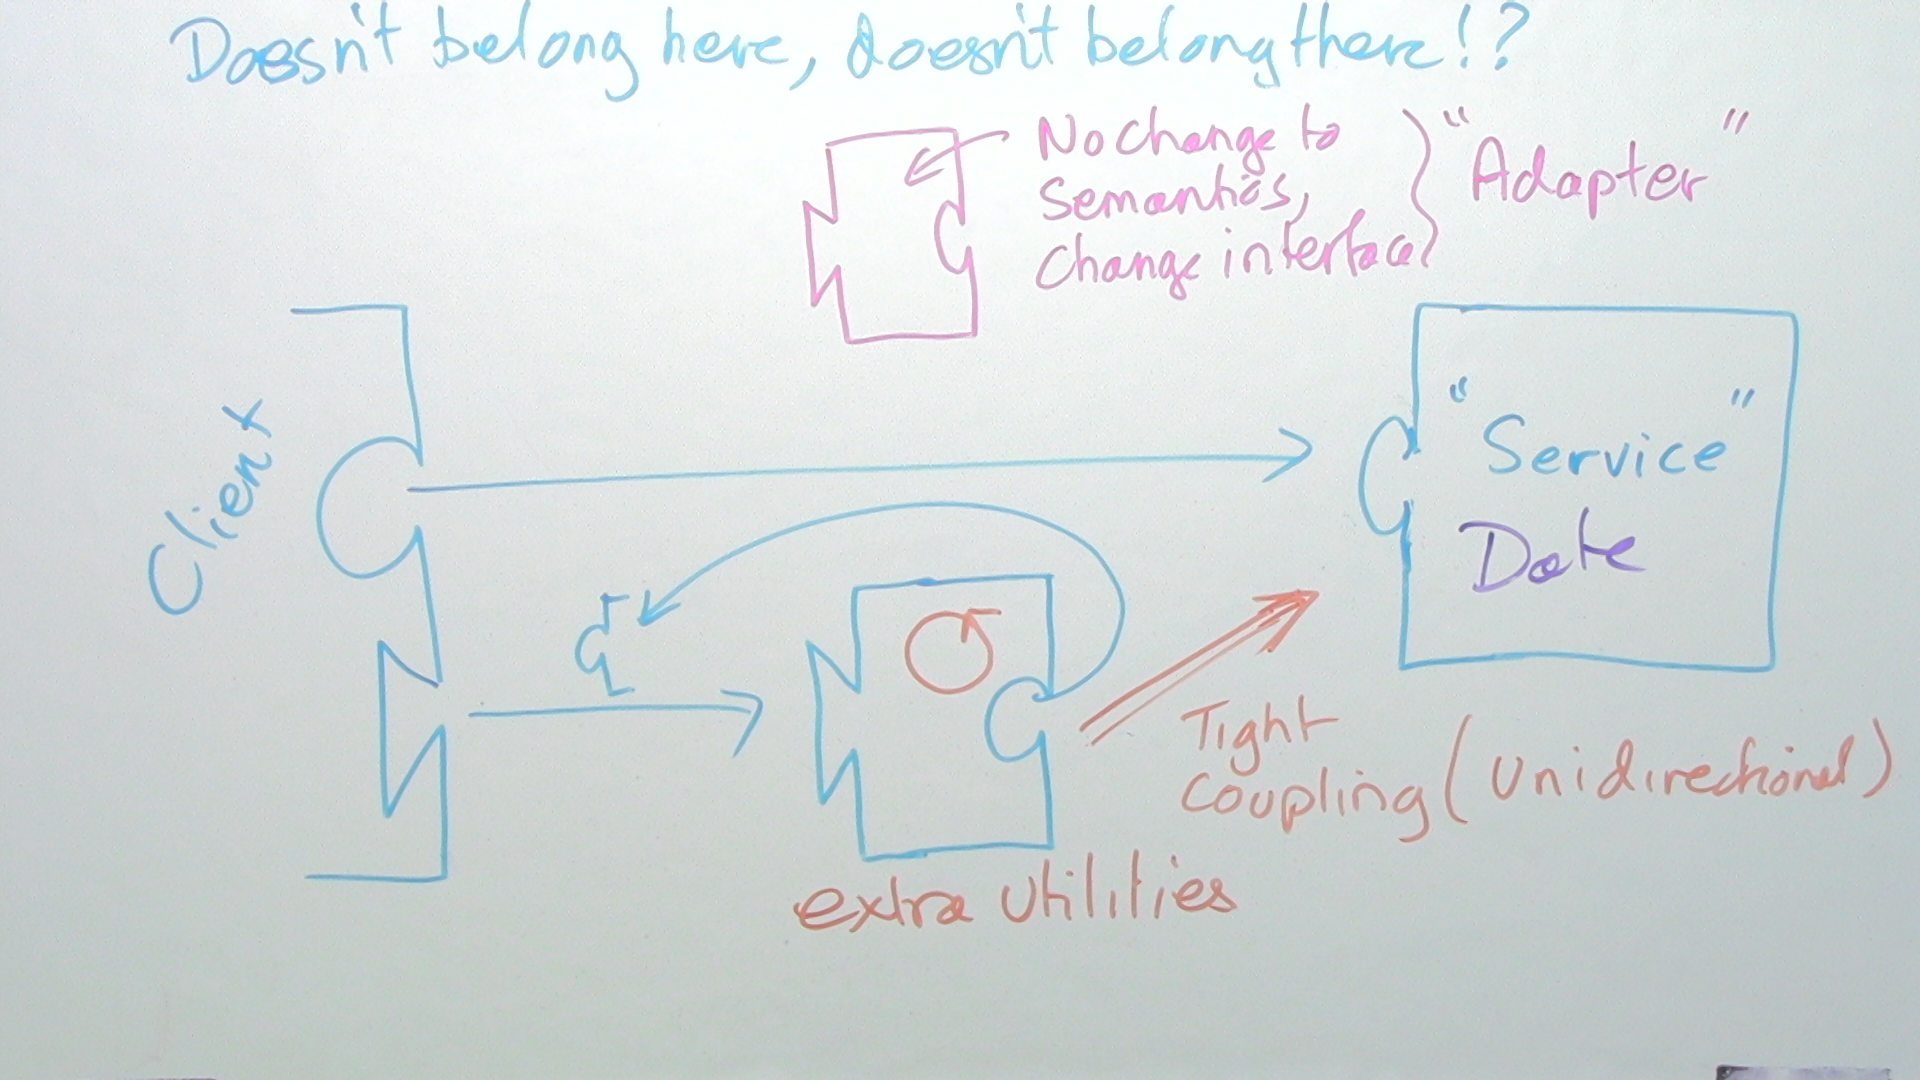 Doesn't belong here, doesn't belong there!?
No change to
Semantics,
Change interface
"Adapter"
Client
"Service"
Date
Tight
Coupling (Unidirectional)
extra utilities